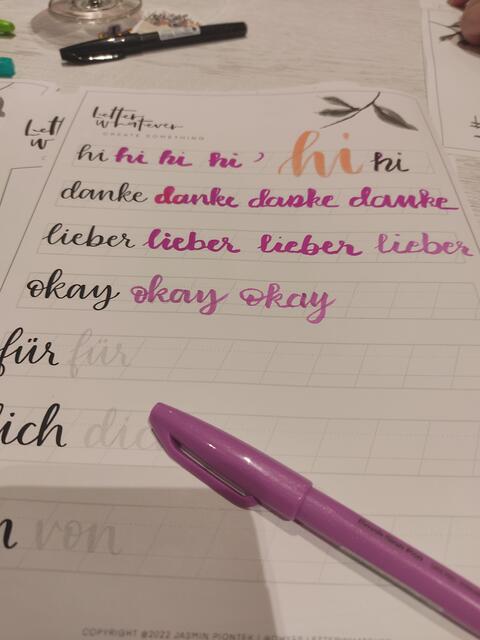 Letter
Whatever
CREATE SOMETHING
Lett
w
hi hi hi hi hi hi
danke danke danke danke
lieber lieber lieber lieber
okay okay okay
für für
dich dich
von von
COPYRIGHT @2022 JASMIN PIONTEK